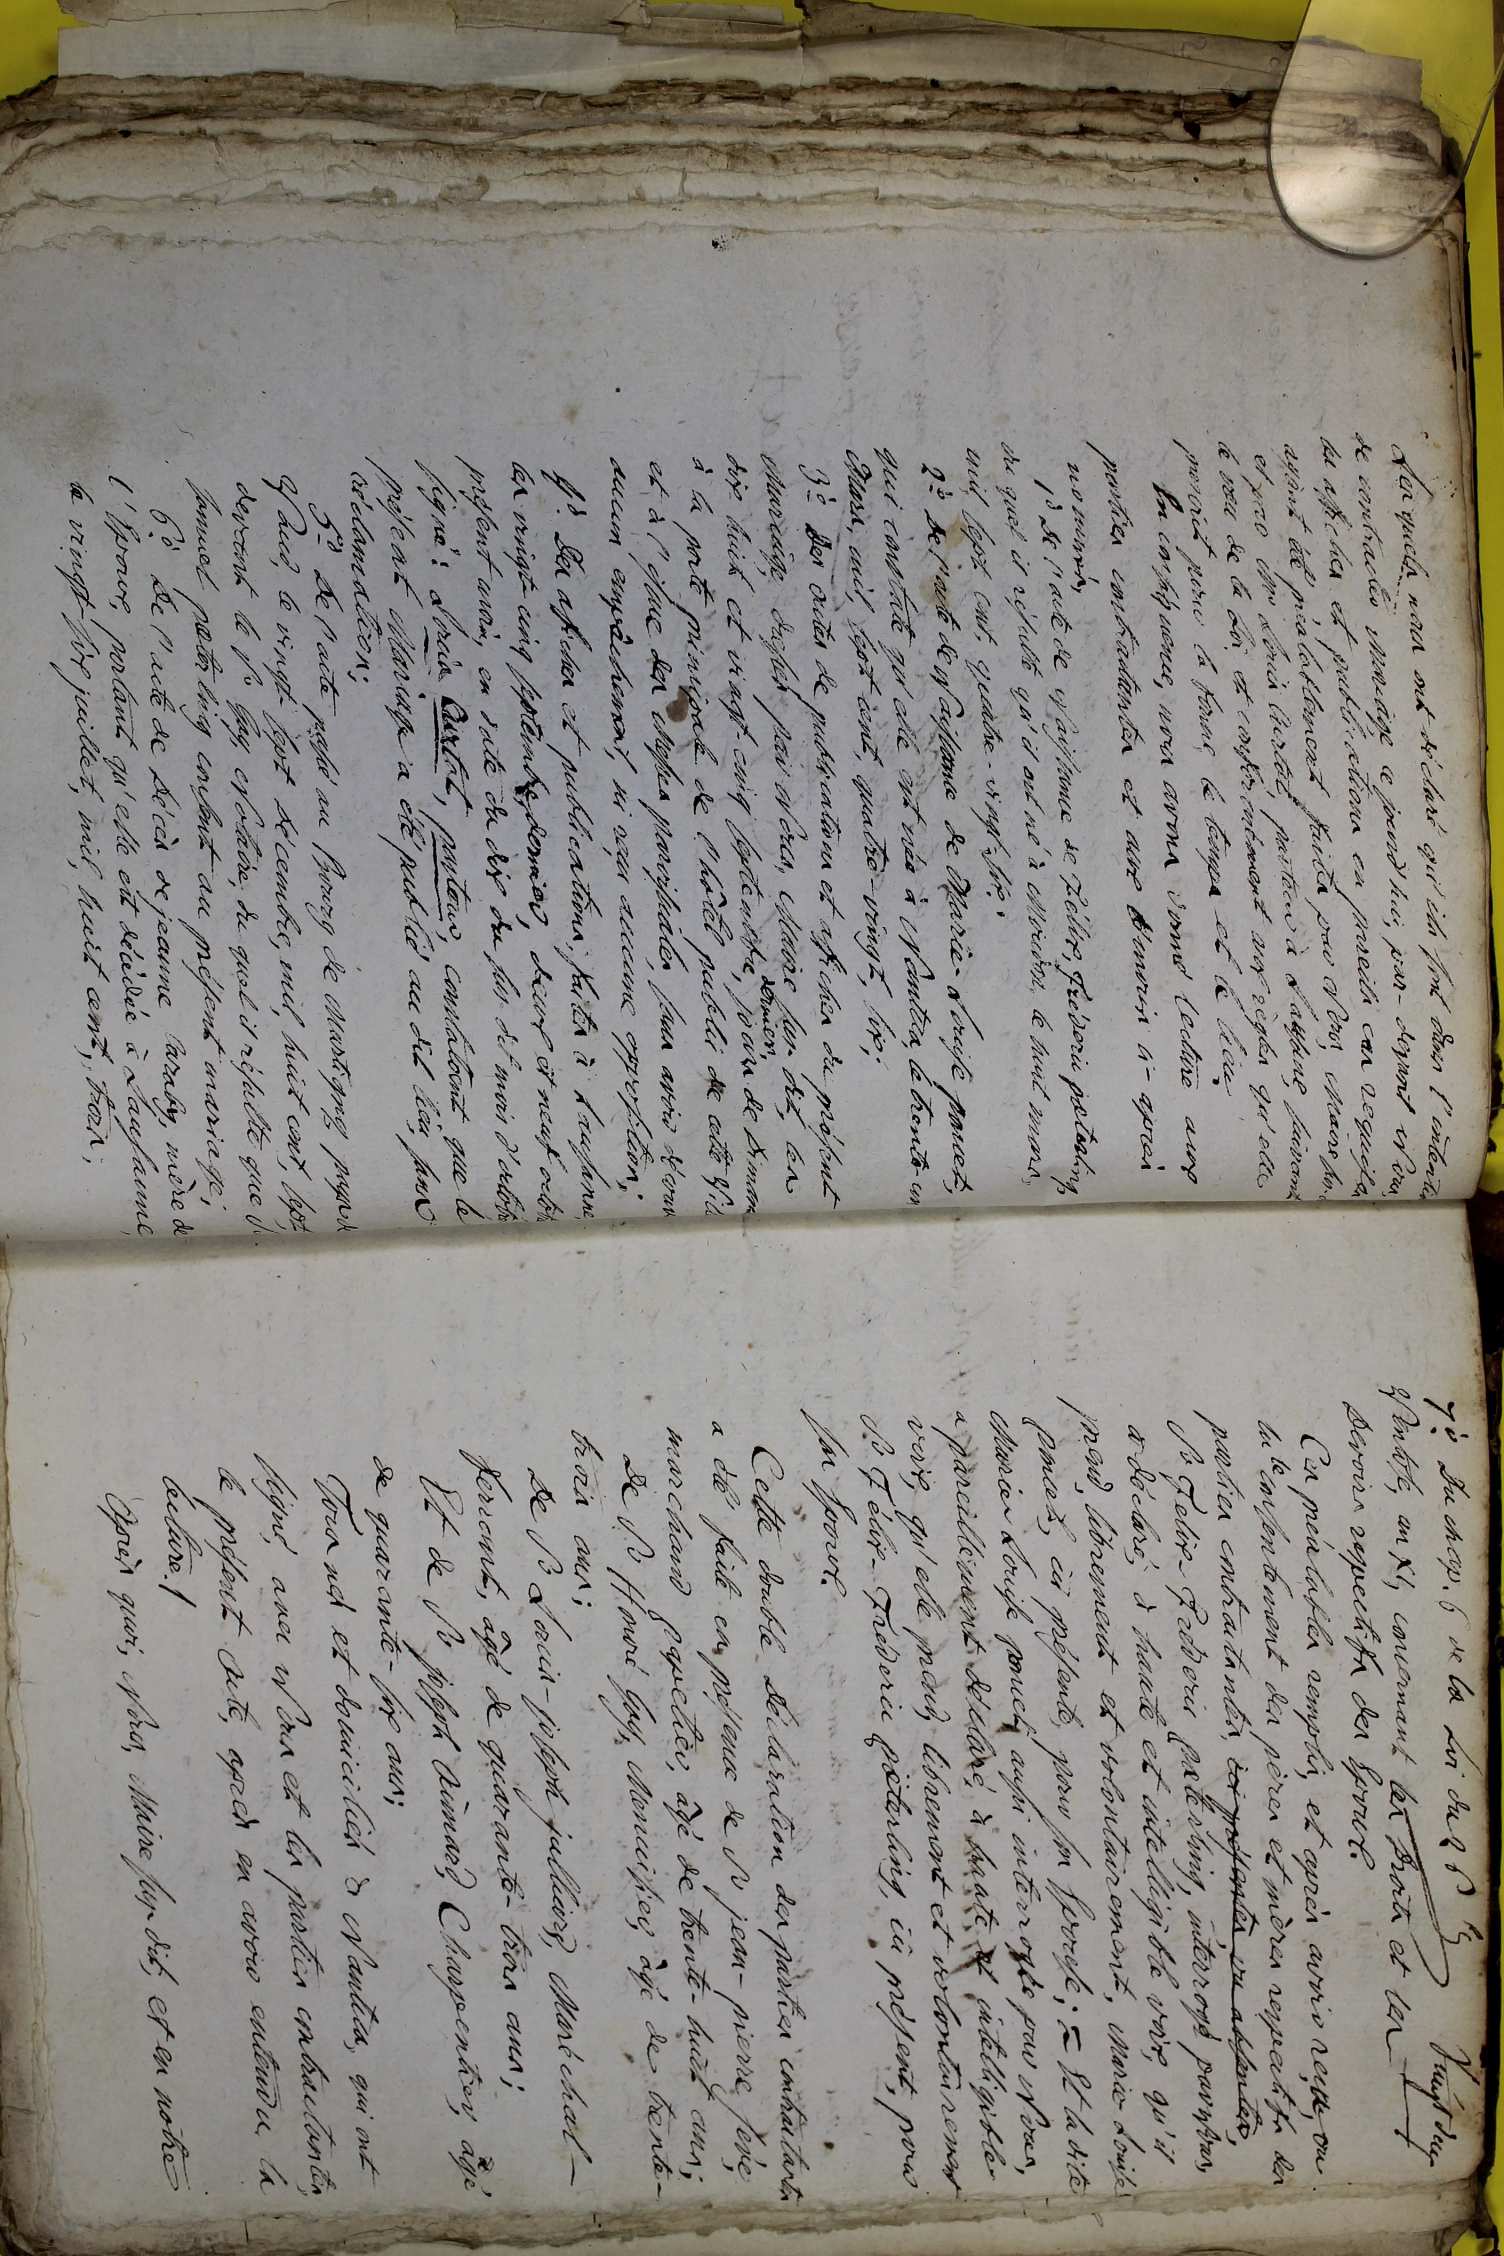 Les quels nous ont déclaré qu'ils sont dans l'intention
de contracter mariage ce jourd'hui, par-devant Nous,
les affiches et publications en pareils cas requises
ayant été préalablement faites par Nous, Maire sus-
et par Mr Louis Curtat, pasteur à Lausanne, suivant
le vœu de la Loi et conformément aux règles qu'elle
prescrit pour la forme, le temps et le lieu.
En conséquence, nous avons donné lecture aux
parties contractantes et aux témoins ci-après
nommés,
1º De l'acte de Naissance de Félix, Fréderic pæterling
du quel il résulte qu'il est né à Moudon, le huit mars,
mil sept cent, quatre-vingt-six;
2º De l'acte de Naissance de Marie-Louise poncet,
qui constate qu'elle est née à Nantua, le trente un
Mars, mil sept cent, quatre-vingt, six;
3º Des actes de publications et affiches du présent
Mariage, dressés par Nous, Maire sus-dit, les
dix huit et vingt-cinq septembre, dernier, jours de Diman
à la porte principale de l'hôtel public de cette Vil
et à l'issue des Messes paroissiales, sans avoir décou
aucun empêchement, ni reçu aucune opposition;
4º Des affiches et publications faites à Lausanne
les vingt cinq septembre, dernier, deux et neuf octob
présent mois, en date du dix du sus dit mois d'octob
signé: Louis Curtat, pasteur, constatant que le
présent Mariage a été publié au dit lieu, sans
réclamation;
5º De l'acte passé au Bourg de Martigny pays de
Vaud, le vingt sept décembre, mil, huit cent, sept,
devant le Sr Gay, Notaire, du quel il résulte que Sr
samuel pæterling consent au présent mariage;
6º De l'acte de Décès de jeanne Caraby, mère de
l'Epoux, portant qu'elle est décédée à Lausanne,
le vingt-six juillet, mil, huit cent, trois;
7º Du chap. 6 de la Loi du 26
Ventose, an XI, concernant les Droits et les
Devoirs respectifs des Epoux.
Ces préalables remplis, et après avoir reçu, ou
lu le consentement des pères et mères respectifs des
parties contractantes, ici présentes ou absentes,
Sr Felix Féderic Pæterling, interrogé par Nous,
a déclaré, à haute et intelligible voix, qu'il
prend, librement et volontairement, Marie Louise
poncet, ici présente, pour son Epouse; = Et la dite
Marie Louise poncet, aussi interrogée par Nous,
a pareillement déclaré, à haute et intelligible
voix, qu'elle prend, librement et volontairement
Sr Félix-Fréderic pæterling, ici présent, pour
son Epoux.
Cette double Déclaration des parties contractantes
a été faite en présence de Sr jean-pierre
marchand papetier, âgé de trente-huit ans;
De Sr Honoré Gay, Menuisier, âgé de trente-
trois ans;
De Sr Louis-joseph julliard, Maréchal-
ferrant, âgé de quarante-trois ans;
Et de Sr joseph Aimard, Charpentier, âgé
de quarante-six ans;
Tous nés et domiciliés à Nantua, qui ont
signé, avec Nous et les parties contractantes,
le présent Acte, après en avoir entendu la
lecture./
Après quoi, Nous, Maire sus-dit, et en notre